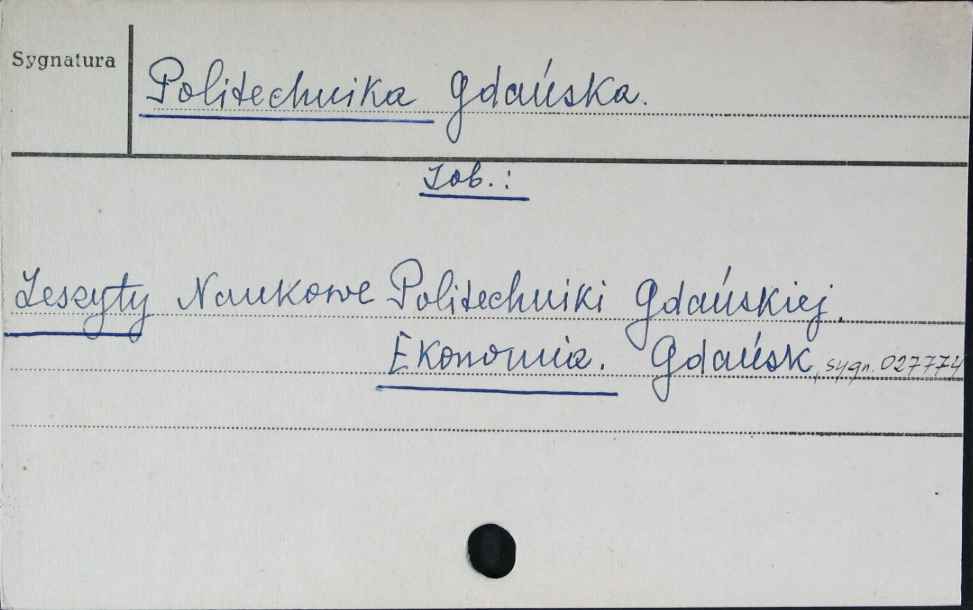 Sygnatura
Politechnika Gdańska.
Zob.:
Zeszyty Naukowe Politechniki Gdańskiej.
Ekonomia. Gdańsk, sygn. 027774